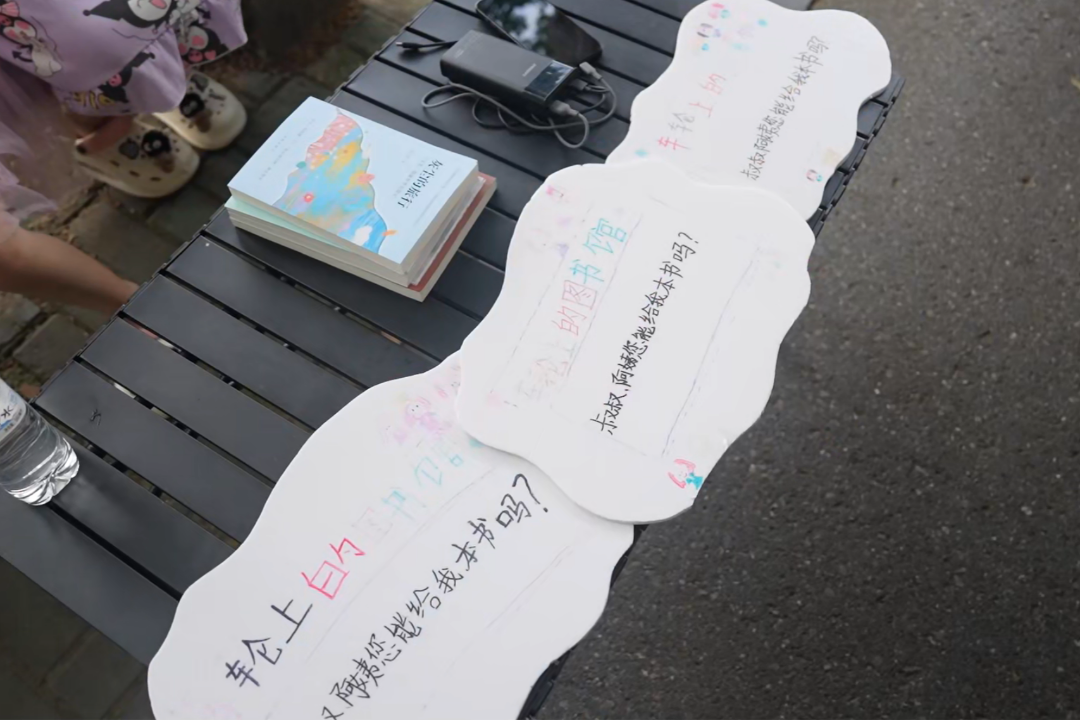 车轮上的
叔叔阿姨您能给我本书吗?
灰尘的旅行
车轮上的图书馆
叔叔,阿姨您能给我本书吗?
车仑上的图书馆
阿姨您能给我本书吗?